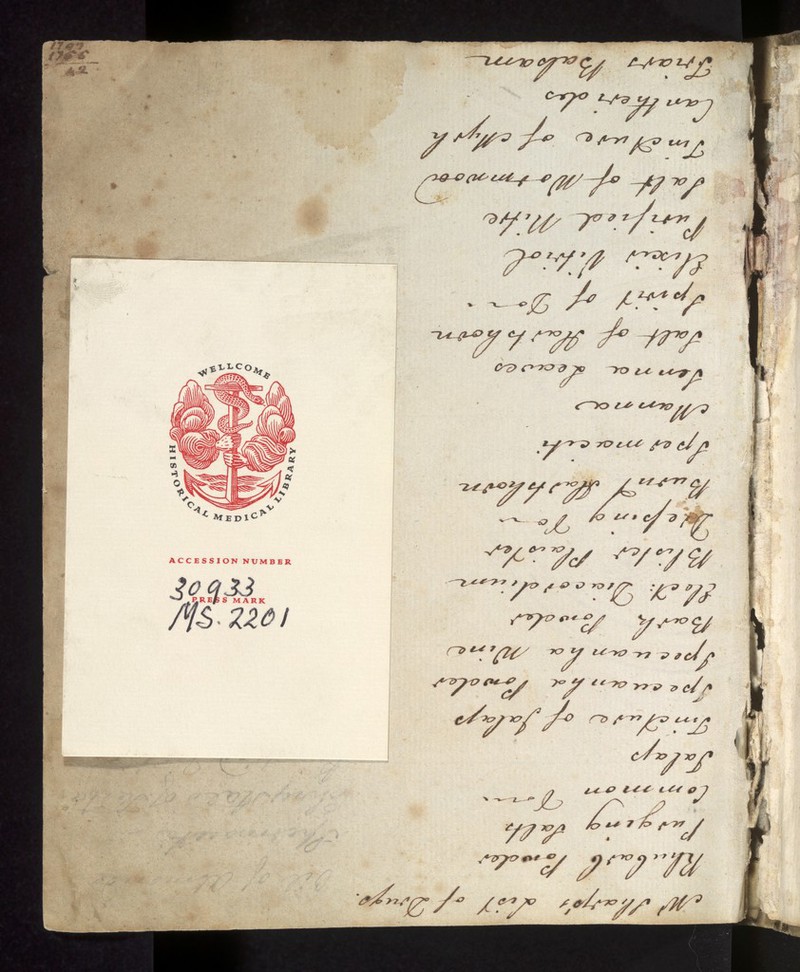 1797
1755
42
WELLCOME
HISTORICAL MEDICAL LIBRARY
ACCESSION NUMBER
30933
PRESS MARK
MS. 2201
Mr Sharp's List of Drugs.
Rhubarb Powder
Purging Salts
Common Do
Jalap
Tincture of Jalap
Ipecuanha Powder
Ipecuanha Wine
Bark Powder
Elect: Diascordium
Blister Plaister
Do
Burnt Hartshorn
Spermaceti
Manna
Senna Leaves
Salt of Hartshorn
Spirit of Do
Elixir Vitriol
Purified Nitre
Salt of Wormwood
Tincture of Myrh
Cantherides
Friars Balsam
Oil of